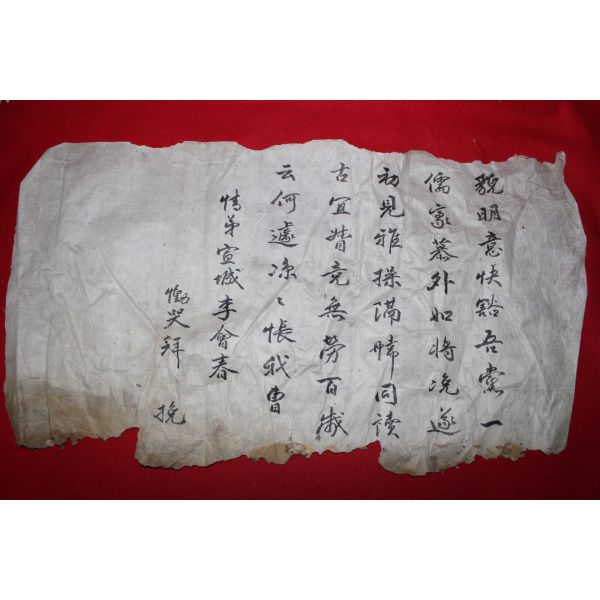 貌明意快豁吾黨一
儒豪慕外如將浼遂
初見雅操滿幃同讀
古宜壻竟無勞百歲
云何遽凉〻悵我曹
情弟宣城李會春
慟哭拜 挽